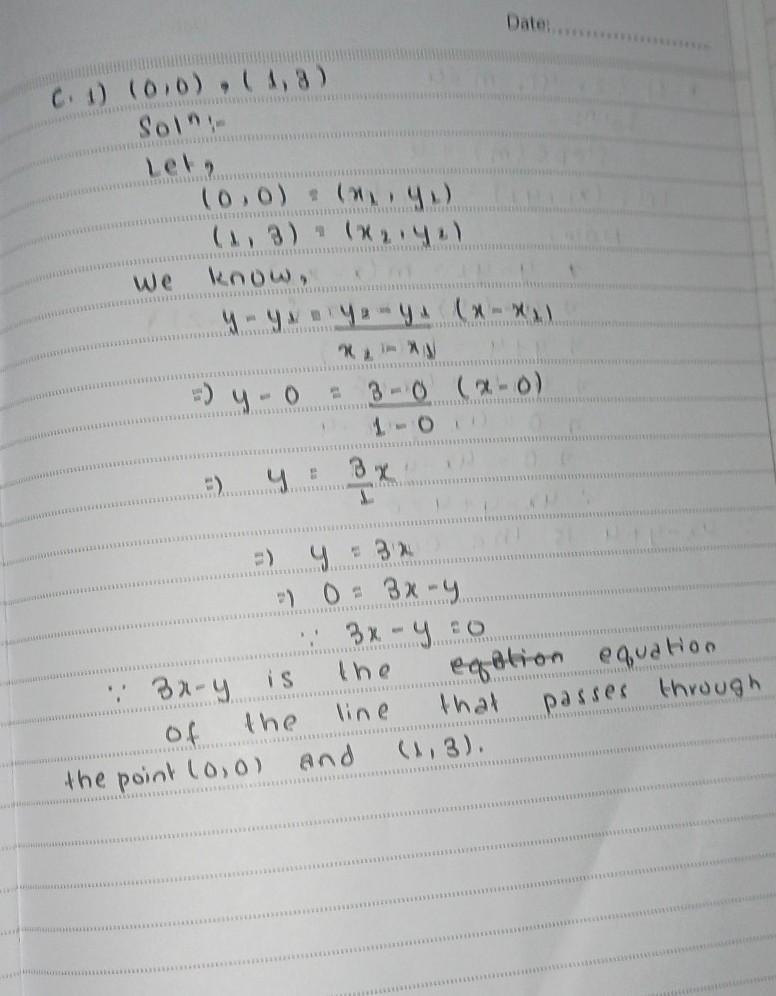 Date:
C. 1) (0,0), (1,3)
Solⁿ:-
Let,
(0,0) = (x₁, y₁)
(1,3) = (x₂, y₂)
We know,
y - y₁ = y₂ - y₁ (x - x₁)
x₂ - x₁
=> y - 0 = 3 - 0 (x - 0)
1 - 0
=> y = 3 x
1
=> y = 3x
=> 0 = 3x - y
∵ 3x - y = 0
∵ 3x - y is the eqation equation
of the line that passes through
the point (0,0) and (1,3).